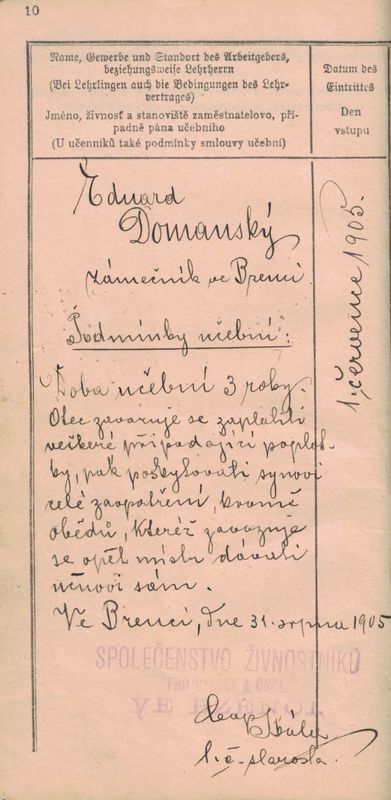 10
Name, Gewerbe und Standort des Arbeitgebers,
beziehungsweise Lehrherrn
(Bei Lehrlingen auch die Bedingungen des Lehr-
vertrages)
Jméno, živnosť a stanoviště zaměstnatelovo, pří-
padně pána učebního
(U učenníků také podmínky smlouvy učební)
Datum des
Eintrittes
Den
vstupu
Eduard
Domanský
zámečník ve Brenci
1. července 1905.
Podmínky učební:
Doba učební 3 roky.
Otec zavazuje se zaplatiti
veškeré připadající poplat-
ky, pak poskytovati synovi
celé zaopatření, kromě
obědů, kteréž zavazuje
se opět mistr dávati
učňovi sám.
Ve Brenci, dne 31. srpna 1905
SPOLEČENSTVO ŽIVNOSTNÍKŮ
PRO A OKOLÍ
VE
Skála
t. č. starosta.